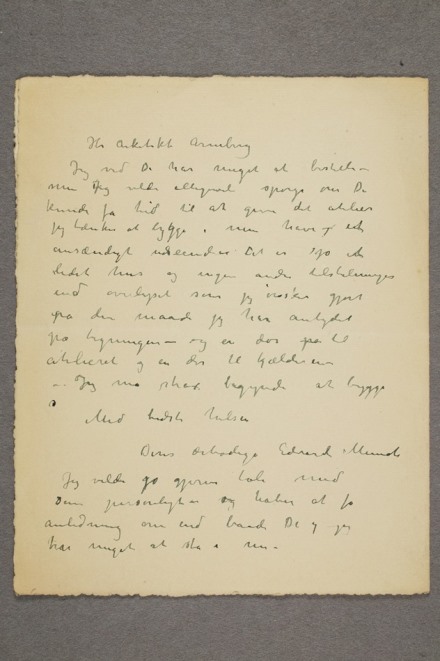 Hr Arkitekt Arneberg
Jeg ved De har meget at bestille –
men Jeg vilde alligevel spørge om De
kunde få tid til at gøre det atelier
jeg tænker at bygge i min have et
anstændigt udseende. Det er jo et
hus og ingen andre tilstelninger
end overlyset som jeg ønsker gjort
på den maade jeg har antydet
på tegningen – og en dør til
atelieret og en dør til kjælderen
– Jeg må strax begynde at bygge
Med bedste hilsen
Deres ærbødige Edvard Munch
Jeg vilde jo gjerne tale med
Dem personligt og håber at få
anledning om end baade De og jeg
har meget at stå i nu –